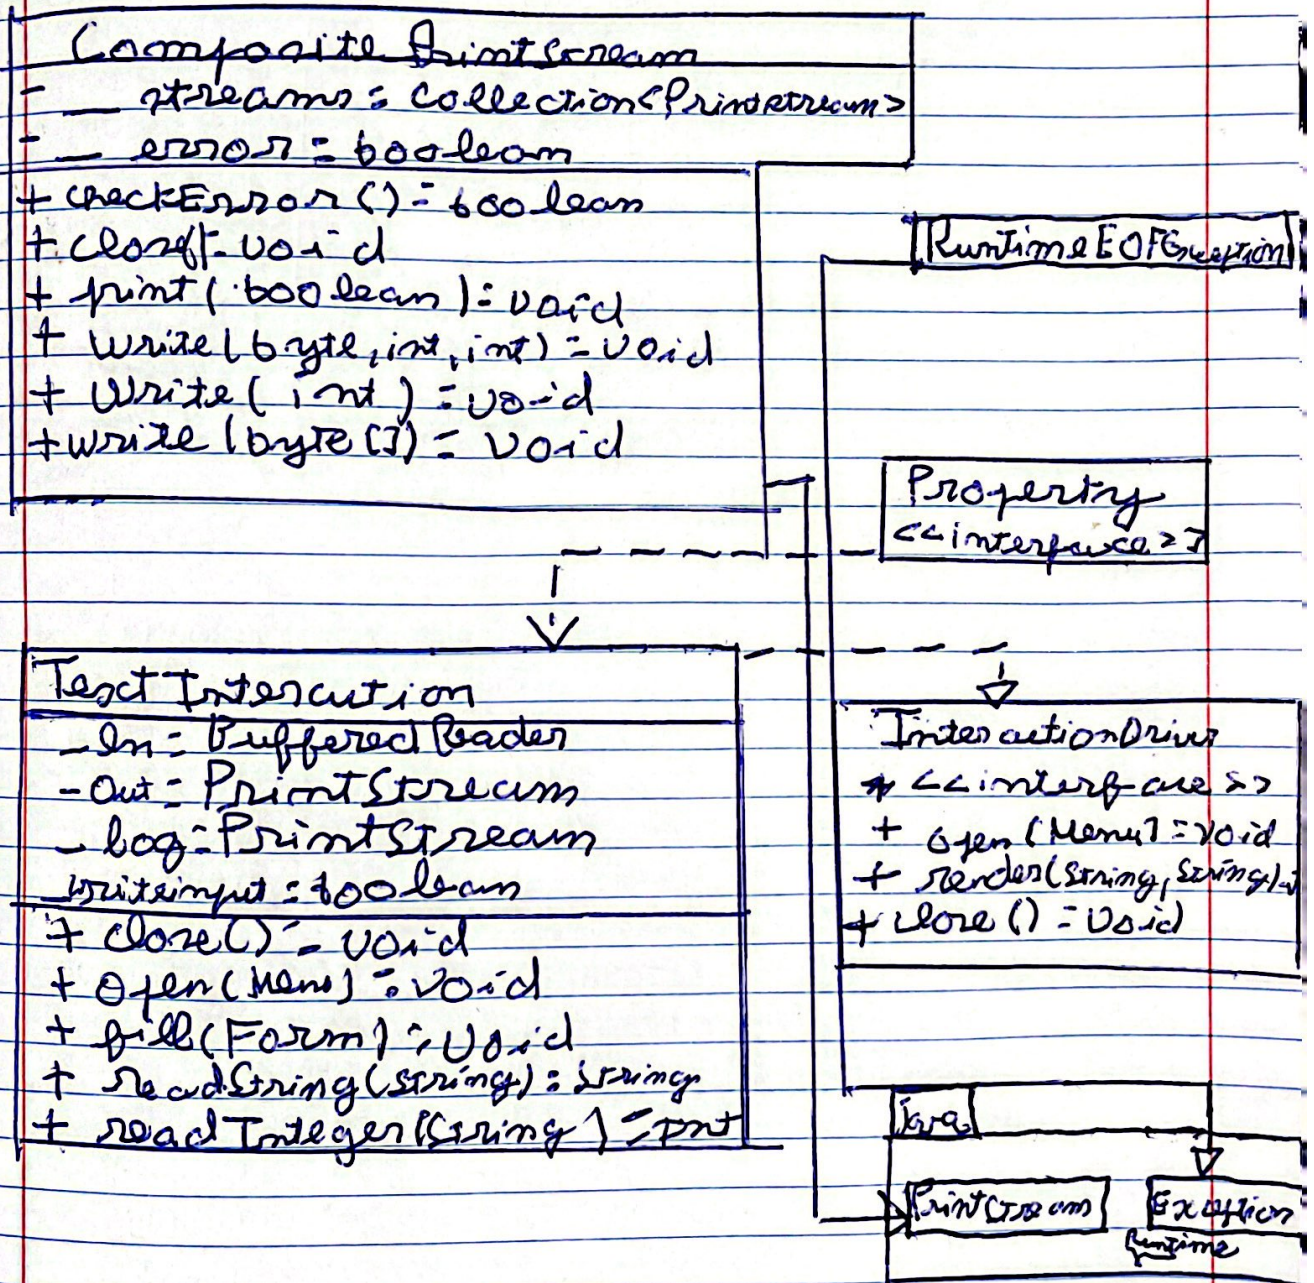 Composite PrintStream
- _ streams = Collection<Printstream>
- _ error = boolean
+ checkError() = boolean
+ close() = void
+ print(boolean) = void
+ Write(byte, int, int) = void
+ Write(int) = void
+ write(byte[]) = void
RuntimeEOFException
Property
<<interface>>
Text Intercution
- In = Buffered Reader
- Out = PrintStream
- log = PrintStream
_ writeinput = boolean
+ close() = void
+ open(Menu) = void
+ fill(Form) = void
+ readString(String) = String
+ read Integer(String) = int
InteractionDriver
+ <<interface>>
+ open (Menu) = void
+ render(String, String)
+ close () = void
Java
PrintStream
Exception
Runtime